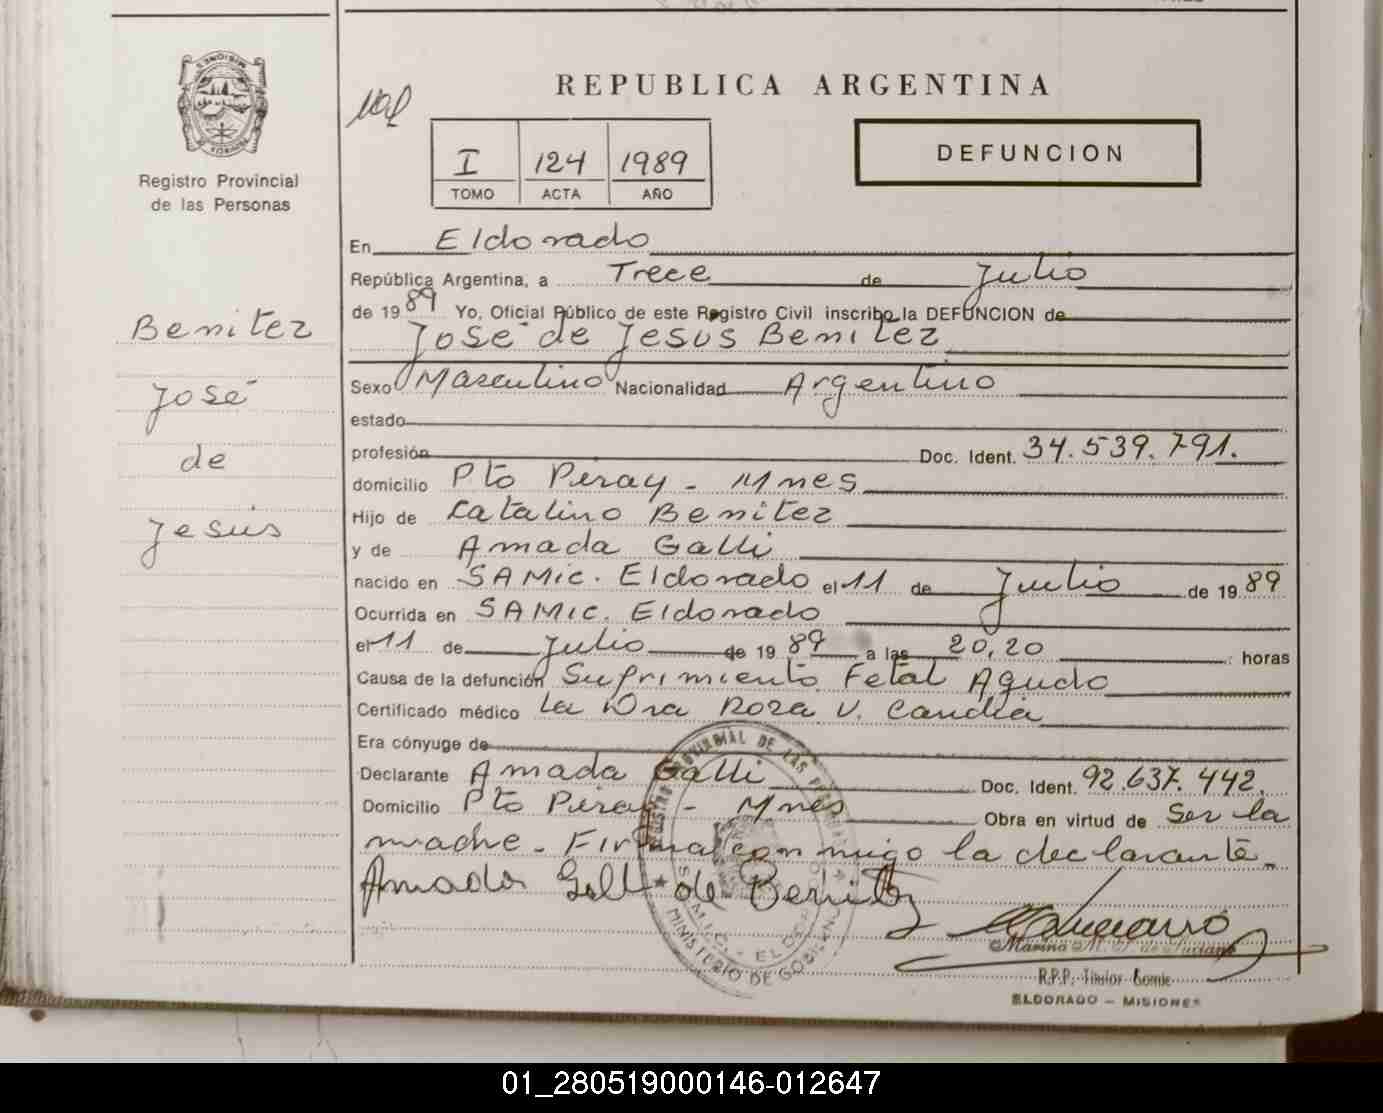 REPUBLICA ARGENTINA
MISIONES
Registro Provincial
de las Personas
I 124 1989
TOMO ACTA AÑO
DEFUNCION
En Eldorado
República Argentina, a Trece de Julio
de 1989 Yo, Oficial Público de este Registro Civil inscribo la DEFUNCION de
José de Jesus Benitez
Benitez
José
de
Jesús
Sexo Masculino Nacionalidad Argentino
estado
profesión Doc. Ident. 34.539.791.
domicilio Pto Piray - Mnes
Hijo de Catalino Benitez
y de Amada Galli
nacido en SAMIC. Eldorado el 11 de Julio de 1989
Ocurrida en SAMIC. Eldorado
el 11 de Julio de 1989 a las 20,20 horas
Causa de la defunción Sufrimiento Fetal Agudo
Certificado médico La Dra Rosa V. Candia
Era cónyuge de
Declarante Amada Galli Doc. Ident. 92.637.442.
Domicilio Pto Piray - Mnes Obra en virtud de Ser la
madre. Firma conmigo la declarante.
Amada Galli de Benitez
REGISTRO PROVINCIAL DE LAS PERSONAS
S.A.M.I.C. - ELDORADO
MINISTERIO DE GOBIERNO
R.P.P. Titular
ELDORADO - MISIONES
01_280519000146-012647